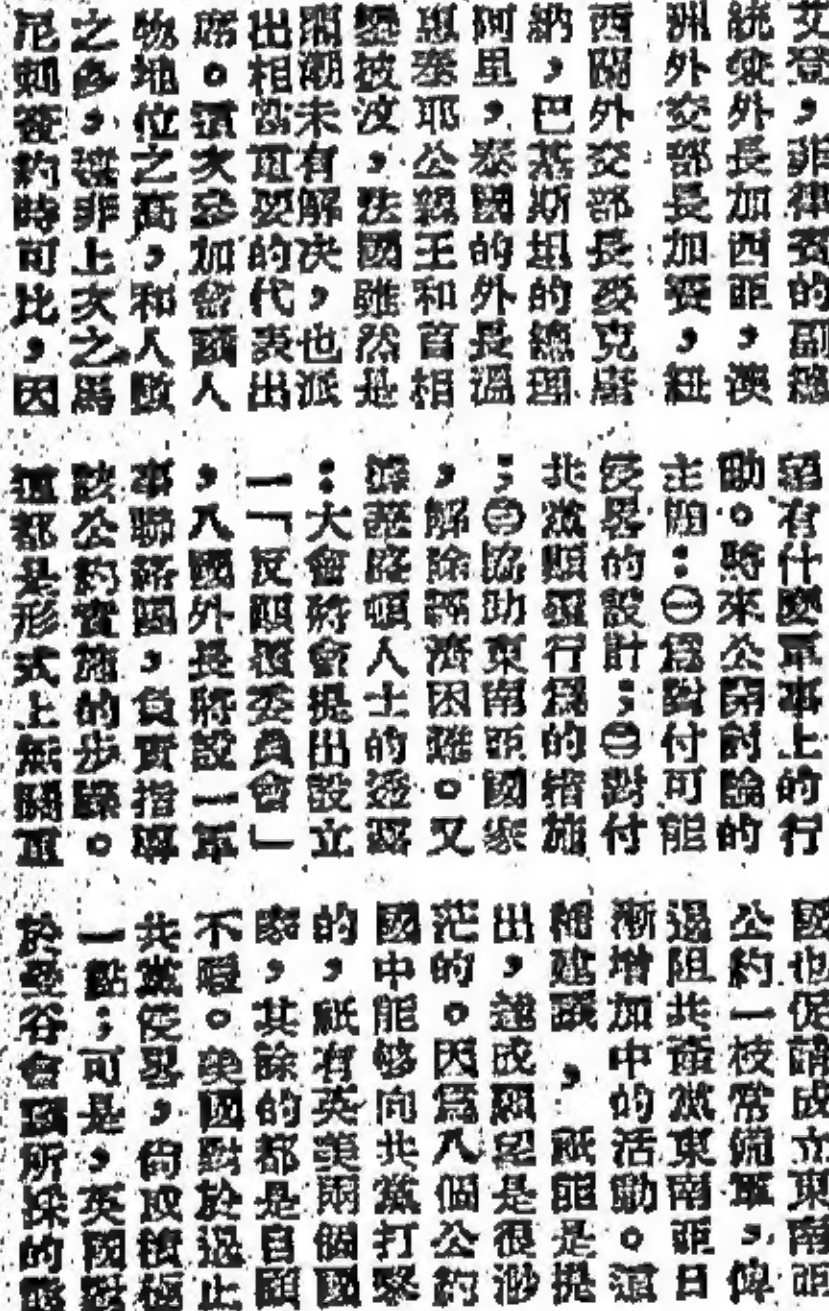 艾登,非律賓的副總
統兼外長加西亞,澳
洲外交部長加賽,紐
西蘭外交部長麥克唐
納,巴基斯坦的總理
阿里,泰國的外長溫
恩塞耶公親王和首相
變披汶,法國雖然是
瀾潮未有解決,也派
出相當重要的代表出
席。這次參加會議人
物地位之高,和人數
之多,遠非上次之馬
尼剌簽約時可比,因
望有什麼軍事上的行
動。將來公開討論的
主題:㊀為對付可能
侵畧的設計;㊁對付
北黨顛覆行為的措施
;㊂協助東南亞國家
,解除經濟因難。又
據華盛頓人士的透露
:大會將會提出設立
一「反顛覆委員會」
,八國外長將設一軍
事聯絡國,負實指導
該公約實施的步驟。
這都是形式上無關重
國也促請成立東南亞
公約一枝常備軍,俾
遏阻共產黨東南亞日
漸增加中的活動。這
種建議,祇能是提
出,達成願望是很渺
茫的。因為八個公約
國中能够向共黨打擊
的,祇有英美兩個國
家,其餘的都是自顧
不暇。美國對於遏止
共黨侵畧,倘取積極
一點;可是,英國對
於曼谷會議所採的態